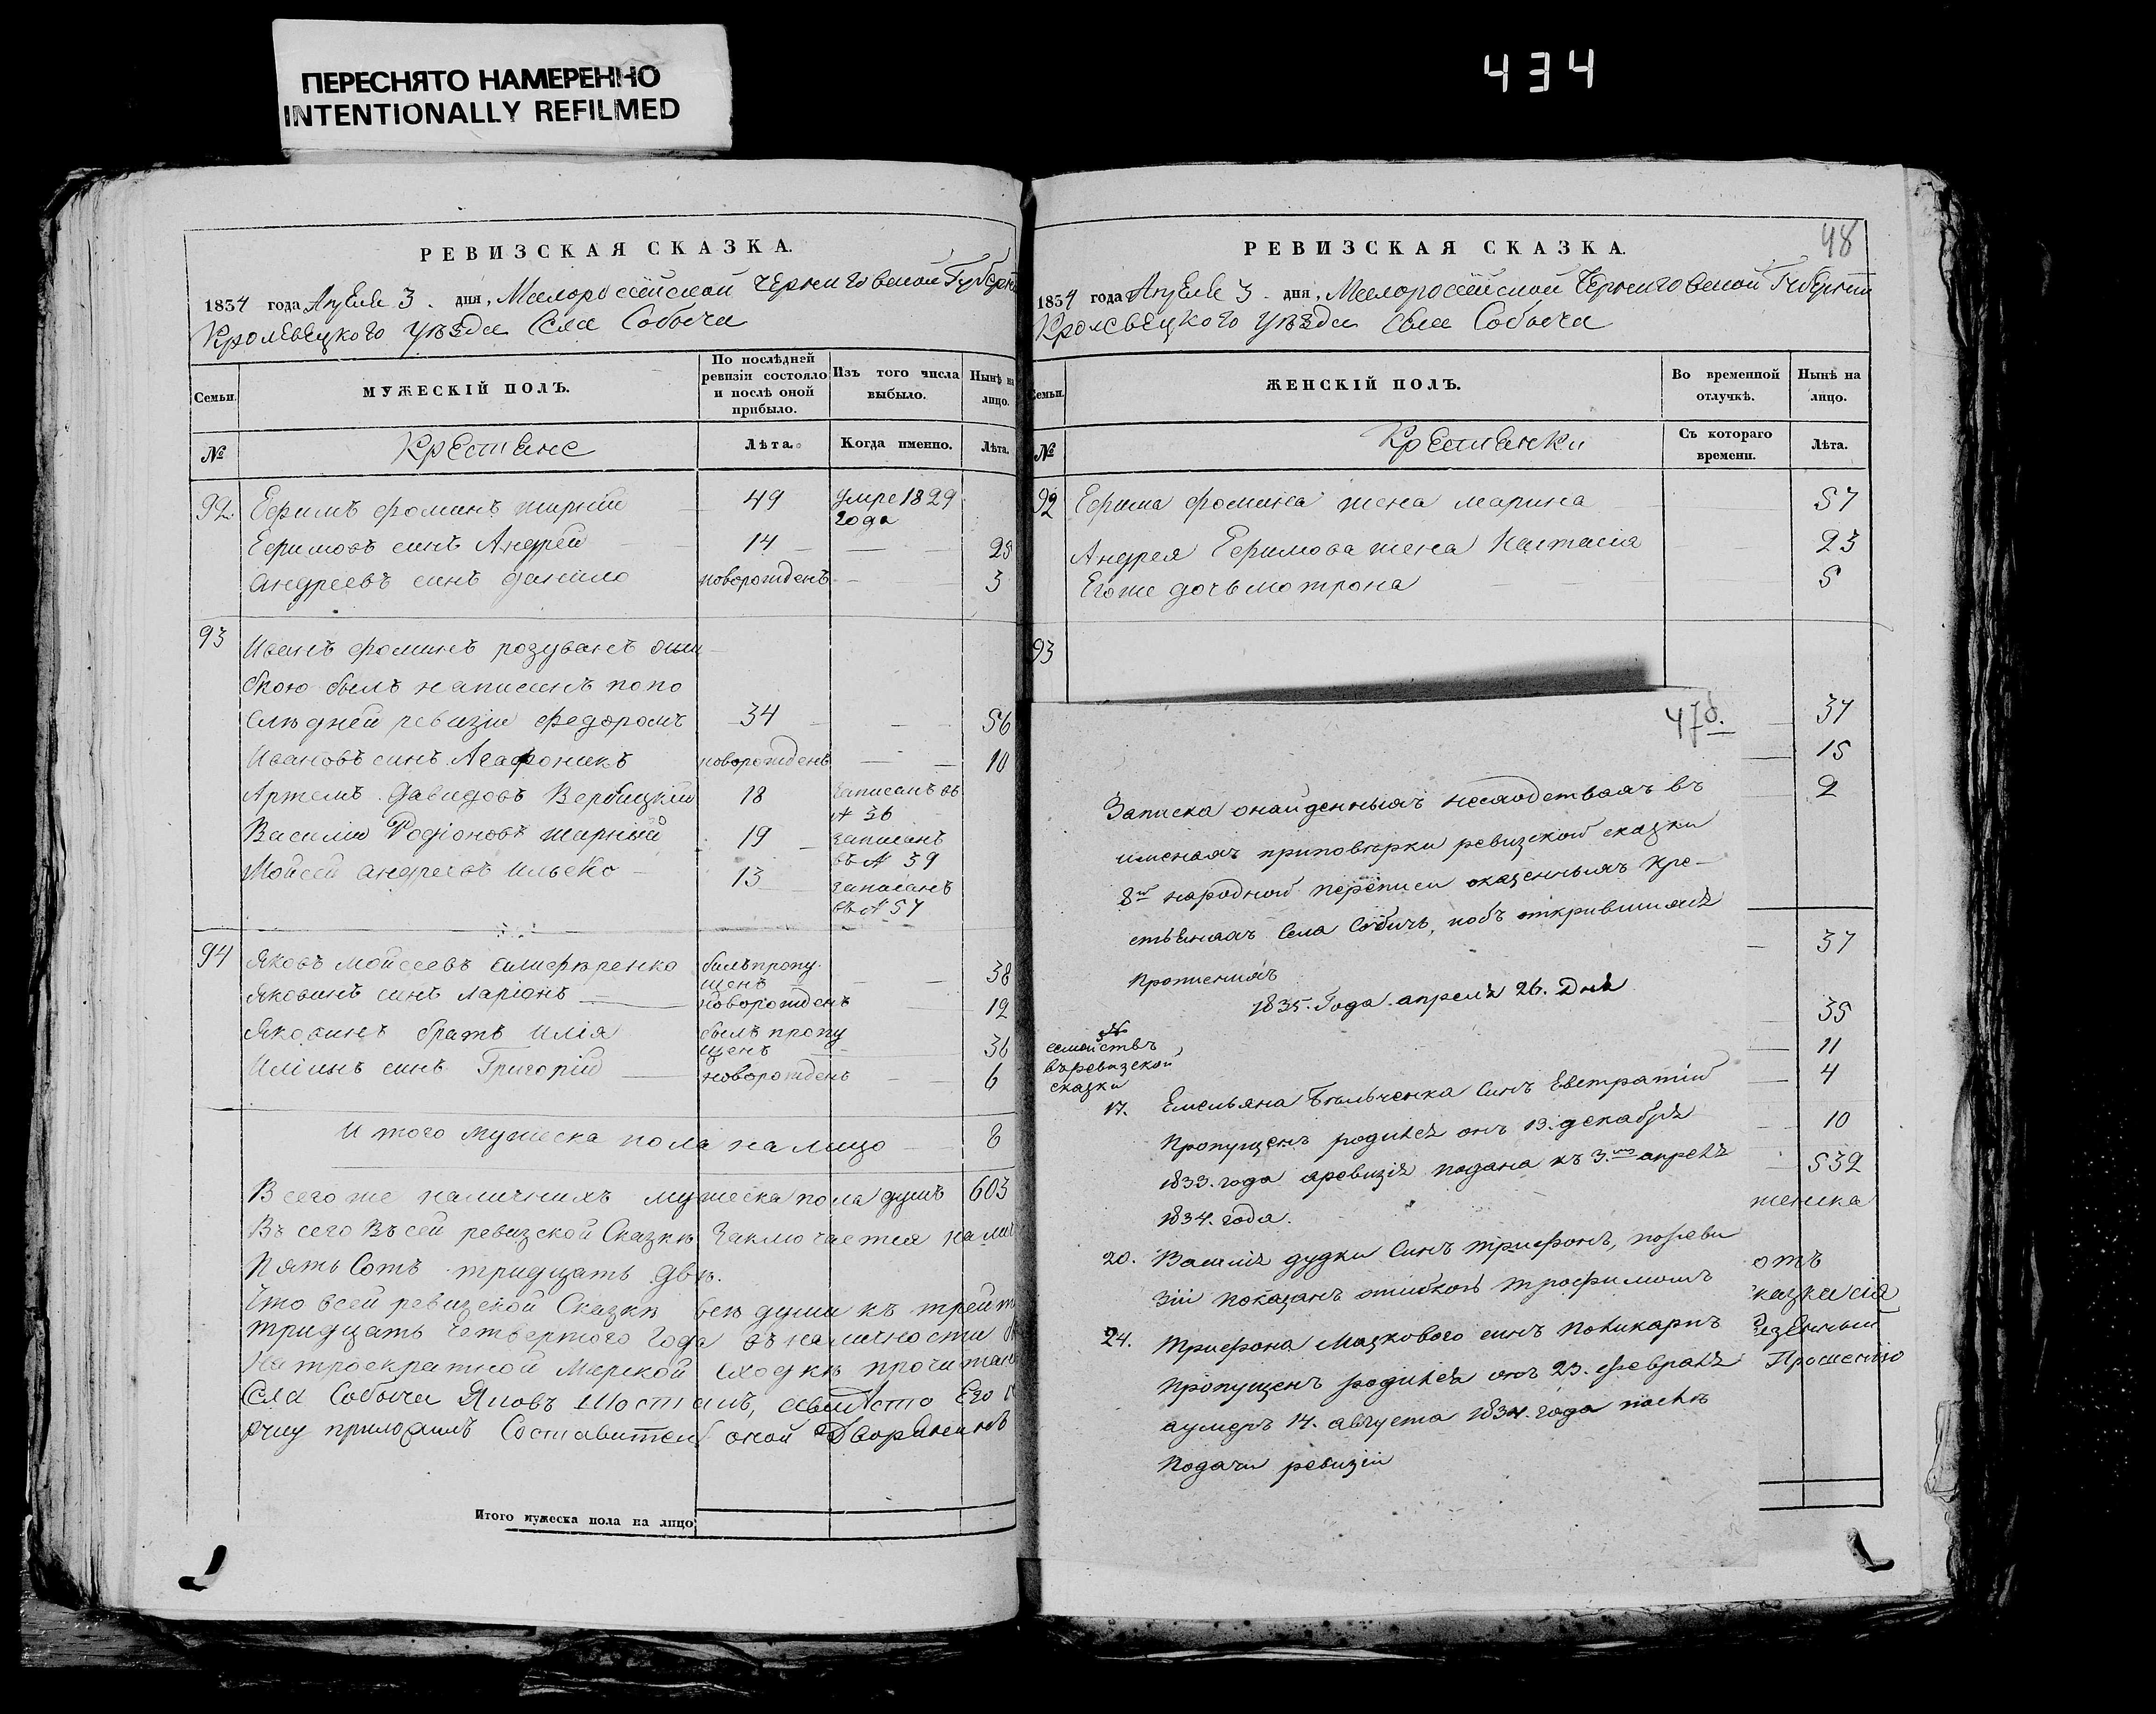 ПЕРЕСНЯТО НАМЕРЕННО
INTENTIONALLY REFILMED
434
РЕВИЗСКАЯ СКАЗКА.
1834 года Апреля 3. дня, Малороссійской Черниговской Губерн
Кролевецкого уѣзда Села Собыча
Семьи.
МУЖЕСКІЙ ПОЛЪ.
По послѣдней ревизіи состояло и послѣ оной прибыло.
Изъ того числа выбыло.
Нынѣ на лицо.
№
Крестьяне
Лѣта.
Когда именно.
Лѣта.
92. Ефимъ Фоминъ жирній 49 умре 1829 года
Ефимовъ синъ Андрей 14 — 25
Андреевъ синъ Данило новорожденъ — 3
93 Иванъ Фоминъ розуванъ оши
бкою былъ написанъ по по
слѣдней ревизіи Федоромъ 34 — 56
Ивановъ синъ Агафоникъ новорожденъ — 10
Артемъ Давидовъ Вербицкій 18 записанъ въ № 36
Василій Родіоновъ жирный 19 записанъ въ № 39
Мойсей Андреевъ Илько 13 записанъ въ № 57
94 Яковъ Мойсеевъ билъ пропущенъ — 38
Яковинъ синъ Ларіонъ новорожденъ 12
Яковинъ братъ Илія былъ пропущенъ — 36
Иліинъ синъ Григорій новорожденъ — 6
И того мужеска пола на лицо 8
Всего же наличнихъ мужеска пола душъ 603
Въ сего въ сей ревизской Сказкѣ заключается на лиц
Пять Сотъ тридцать двѣ.
Что всей ревизской Сказки всѣ души къ
тридцать четвертого Года въ наличности
На троекратной Мирской сходкѣ прочитан
Села Собыча Яковъ Шостакъ, а вмѣсто Его
руку приложилъ Составитель оной Дворянинъ
Итого мужеска пола на лицо
РЕВИЗСКАЯ СКАЗКА.
48
1834 года Апреля 3. дня, Малороссійской Черниговской Губерніи
Кролевецкого уѣзда Села Собыча
Семьи.
ЖЕНСКІЙ ПОЛЪ.
Во временной отлучкѣ.
Нынѣ на лицо.
№
Крестьянки
Съ котораго времени.
Лѣта.
92 Ефима Фомина жена Марина 57
Андрея Ефимова жена Настасія 23
Егоже дочь Мотрона 5
93
37
15
2
37
35
11
4
10
532
женска
отъ
казка сія
Казенный
Прошенію
47об.
Записка о найденныхъ несходствахъ въ
именахъ при повѣрки ревизской сказки
8й народной переписи казенныхъ кре-
стьянахъ Села Собичъ, и объ открившихся
Пропускахъ
1835. Года апреля 26. Дня
№
семействъ
въ ревизской
сказки
17. Емельяна Бѣльченка Синъ Евстратій
Пропущенъ родился онъ 13. декабря
1833. года а ревизія подана къ 3.му апрелѣ
1834. года.
20. Василія дудки Синъ трифонъ, по реви
зіи показанъ ошибкою трофимомъ
24. Трифона Мазкового синъ Поликарпъ
Пропущенъ родился онъ 23. февраля
а умеръ 14. августа 1834. года послѣ
Подачи ревизіи